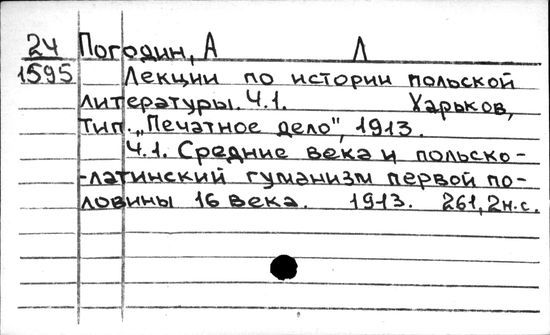 24 Погодин, А Л
1595 Лекции по истории польской
литературы. Ч.1. Харьков,
Тип. „Печатное дело", 1913.
Ч.1. Средние века и польско-
-латинский гуманизм первой по-
ловины 16 века. 1913. 261, 2н.с.